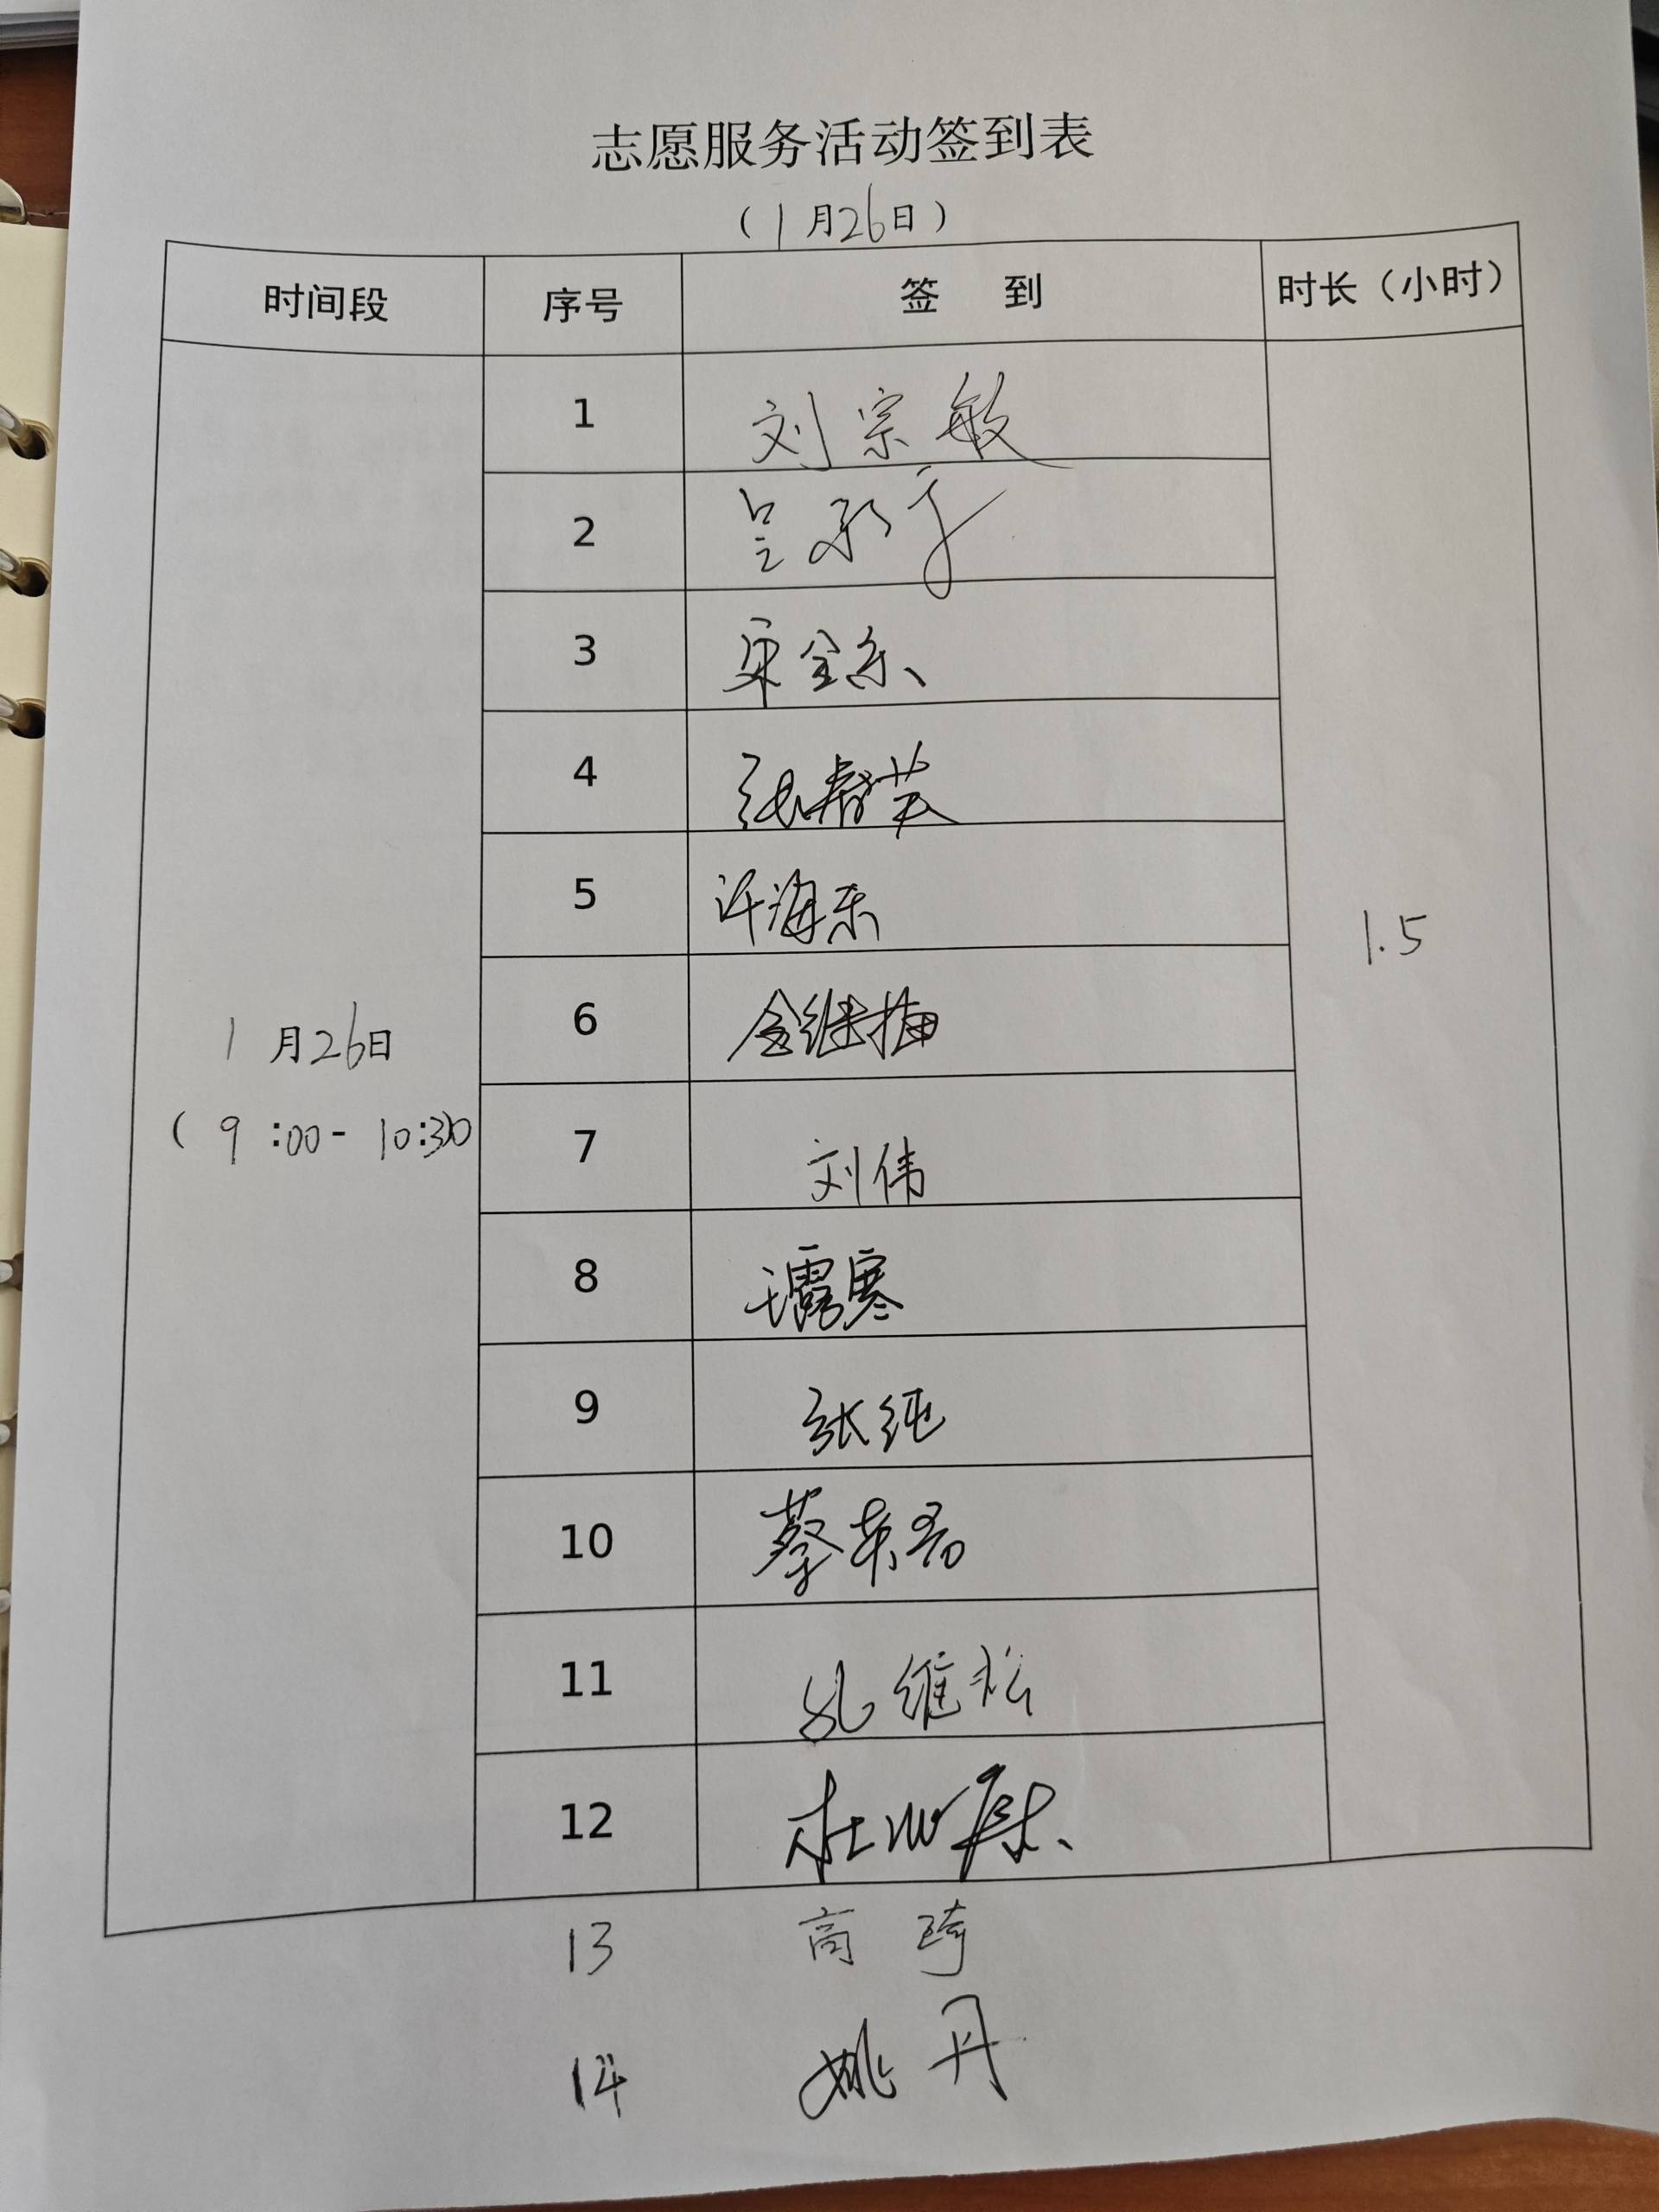 志愿服务活动签到表
(1月26日)
时间段 序号 签 到 时长（小时）
1 刘宗敏
2
3
4
5 许海东
6 金继梅
7 刘伟
8 王露寒
9 张纯
10 蔡英
11 维松
12 杜
13 高琦
14 姚丹
1月26日
(9:00-10:30)
1.5